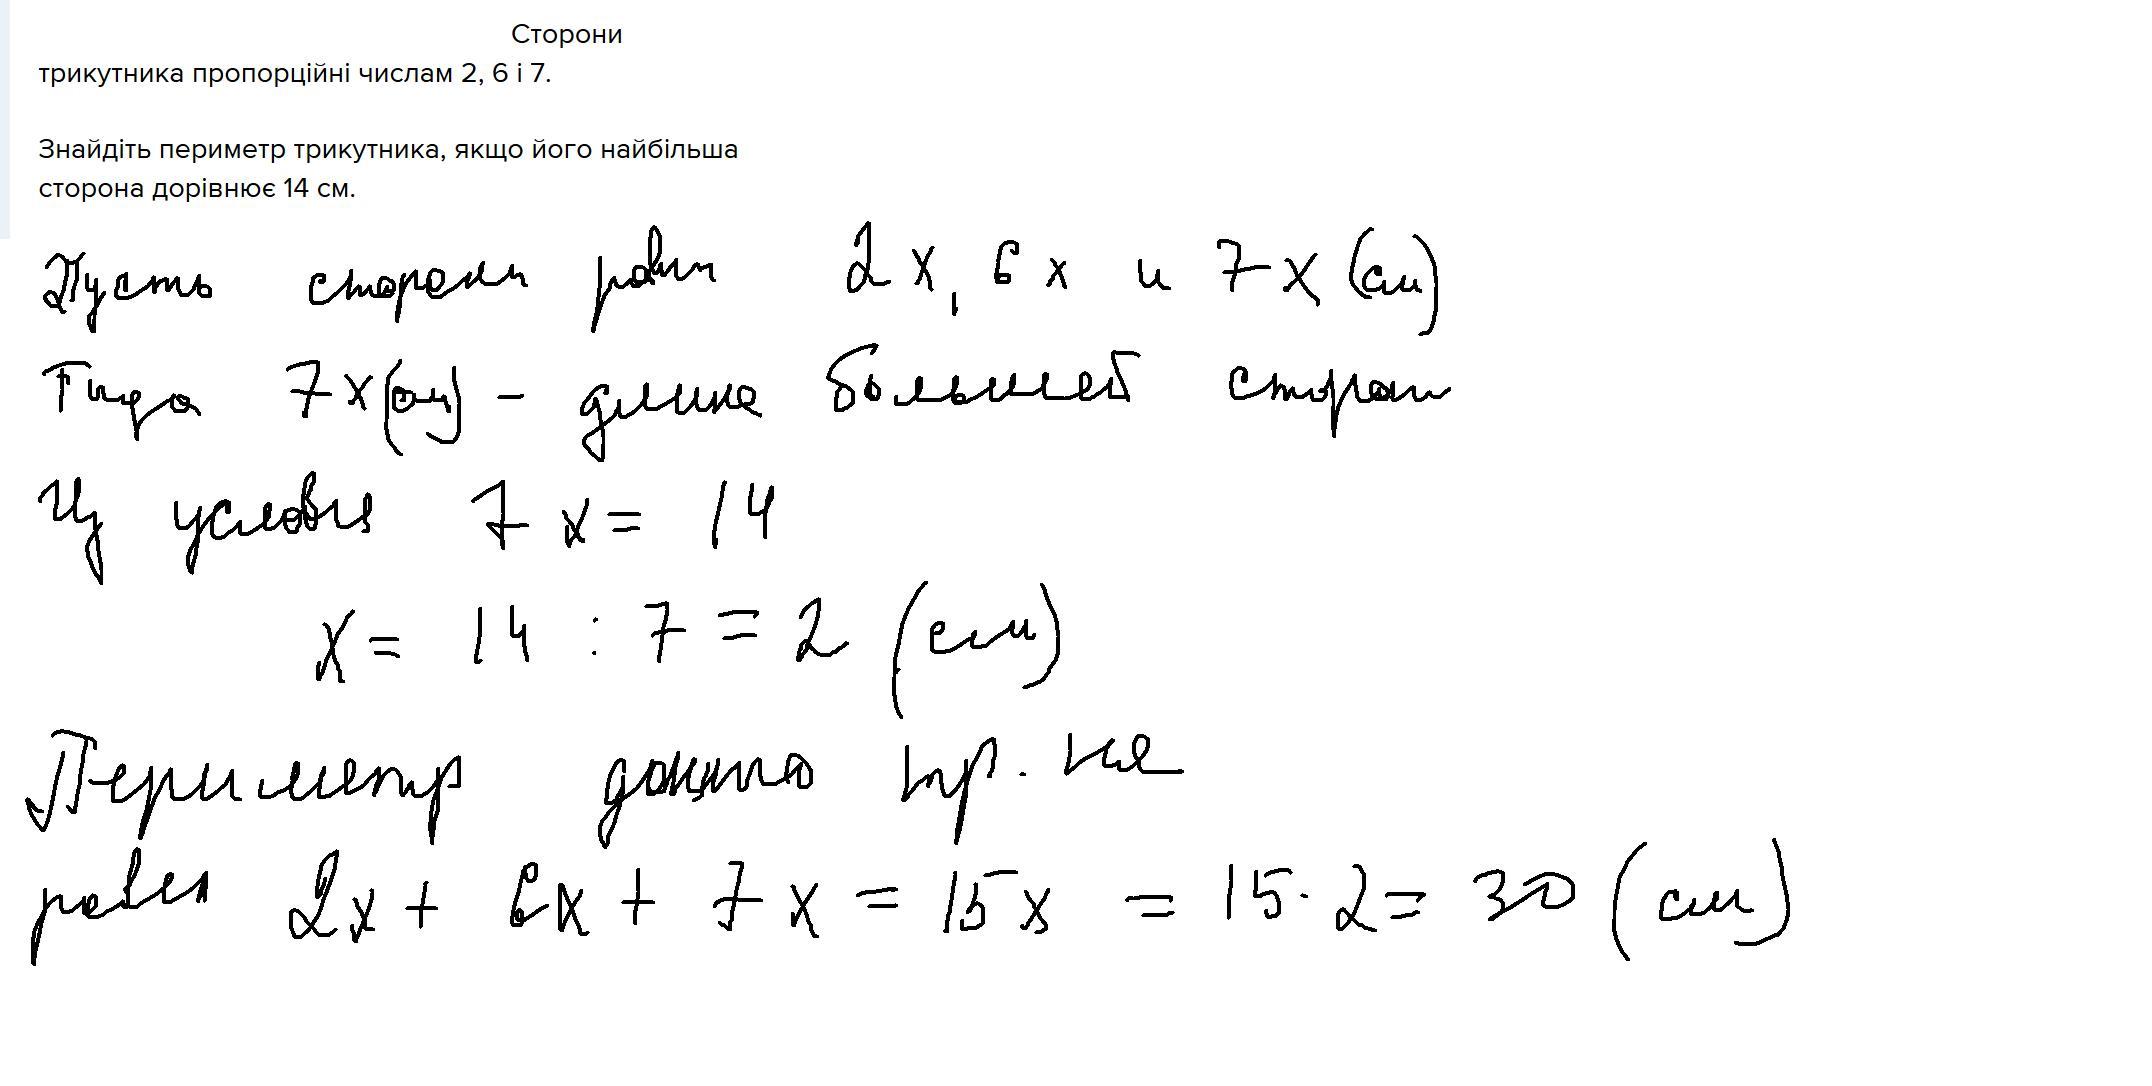 Сторони
трикутника пропорційні числам 2, 6 і 7.
Знайдіть периметр трикутника, якщо його найбільша
сторона дорівнює 14 см.
Пусть стороны равны 2x, 6x и 7x (см)
Тогда 7x(см) - длина большей стороны
Из условия 7x = 14
x = 14 : 7 = 2 (см)
Периметр данного тр.-ка
равен 2x + 6x + 7x = 15x = 15 · 2 = 30 (см)